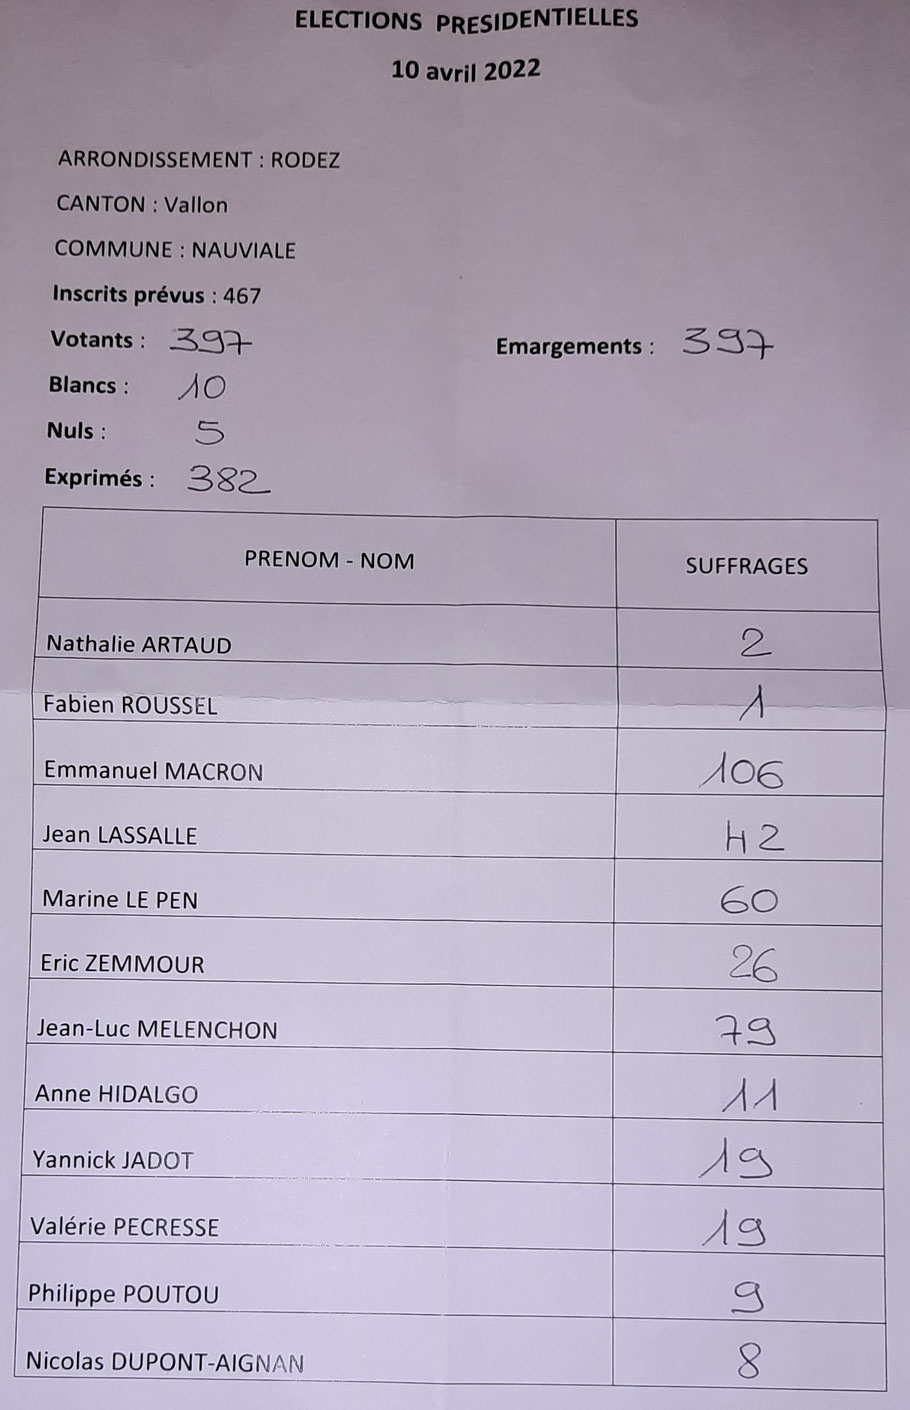 ELECTIONS PRESIDENTIELLES
10 avril 2022
ARRONDISSEMENT : RODEZ
CANTON : Vallon
COMMUNE : NAUVIALE
Inscrits prévus : 467
Votants : 397 Emargements : 397
Blancs : 10
Nuls : 5
Exprimés : 382
PRENOM - NOM SUFFRAGES
Nathalie ARTAUD 2
Fabien ROUSSEL 1
Emmanuel MACRON 106
Jean LASSALLE 42
Marine LE PEN 60
Eric ZEMMOUR 26
Jean-Luc MELENCHON 79
Anne HIDALGO 11
Yannick JADOT 19
Valérie PECRESSE 19
Philippe POUTOU 9
Nicolas DUPONT-AIGNAN 8